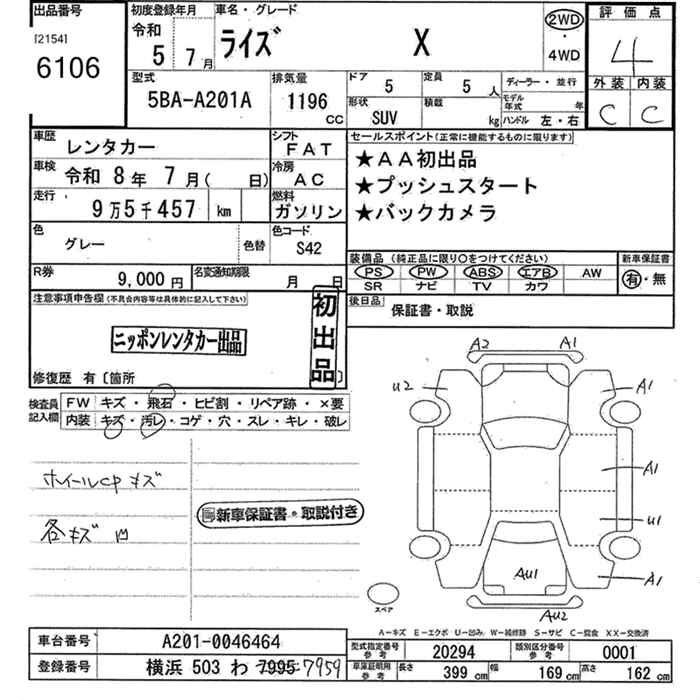 出品番号
[2154]
6106
初度登録年月
令和
5 7月
車名・グレード
ライズ X
2WD
・
4WD
評価点
4
外装 内装
C C
型式
5BA-A201A
排気量
1196
cc
ドア 5
定員 5 人
形状 SUV
積載 kg
ディーラー・並行
モデル年式 年
ハンドル 左・右
車歴 レンタカー
シフト FAT
車検 令和 8年 7月( 日)
冷房 AC
走行 9万5千457 km
燃料 ガソリン
色 グレー
色替
色コード S42
R券 9,000円
名変通知期限 月 日
セールスポイント(正常に機能するものに限ります)
★AA初出品
★プッシュスタート
★バックカメラ
装備品(純正品に限り〇をつけてください)
PS PW ABS エアB AW
SR ナビ TV カワ
新車保証書
有・無
後日品 保証書・取説
注意事項申告欄(不具合内容等は具体的に記入して下さい)
ニッポンレンタカー出品
初出品
修復歴 有〔箇所 〕
検査員記入欄
FW キズ・飛石・ヒビ割・リペア跡・×要
内装 キズ・汚レ・コゲ・穴・スレ・キレ・破レ
ホイールCP キズ
各キズ 凹
新車保証書・取説付き
A2 A1
U2 A1
A1
U1
AU1 A1
AU2
スペア
A-キズ E-エクボ U-凹み W-補修跡 S-サビ C-腐食 XX-交換済
車台番号 A201-0046464
登録番号 横浜 503 わ 7995 7959
型式指定番号 参考 20294
類別区分番号 参考 0001
車庫証明用 参考 長さ 399 cm 幅 169 cm 高さ 162 cm